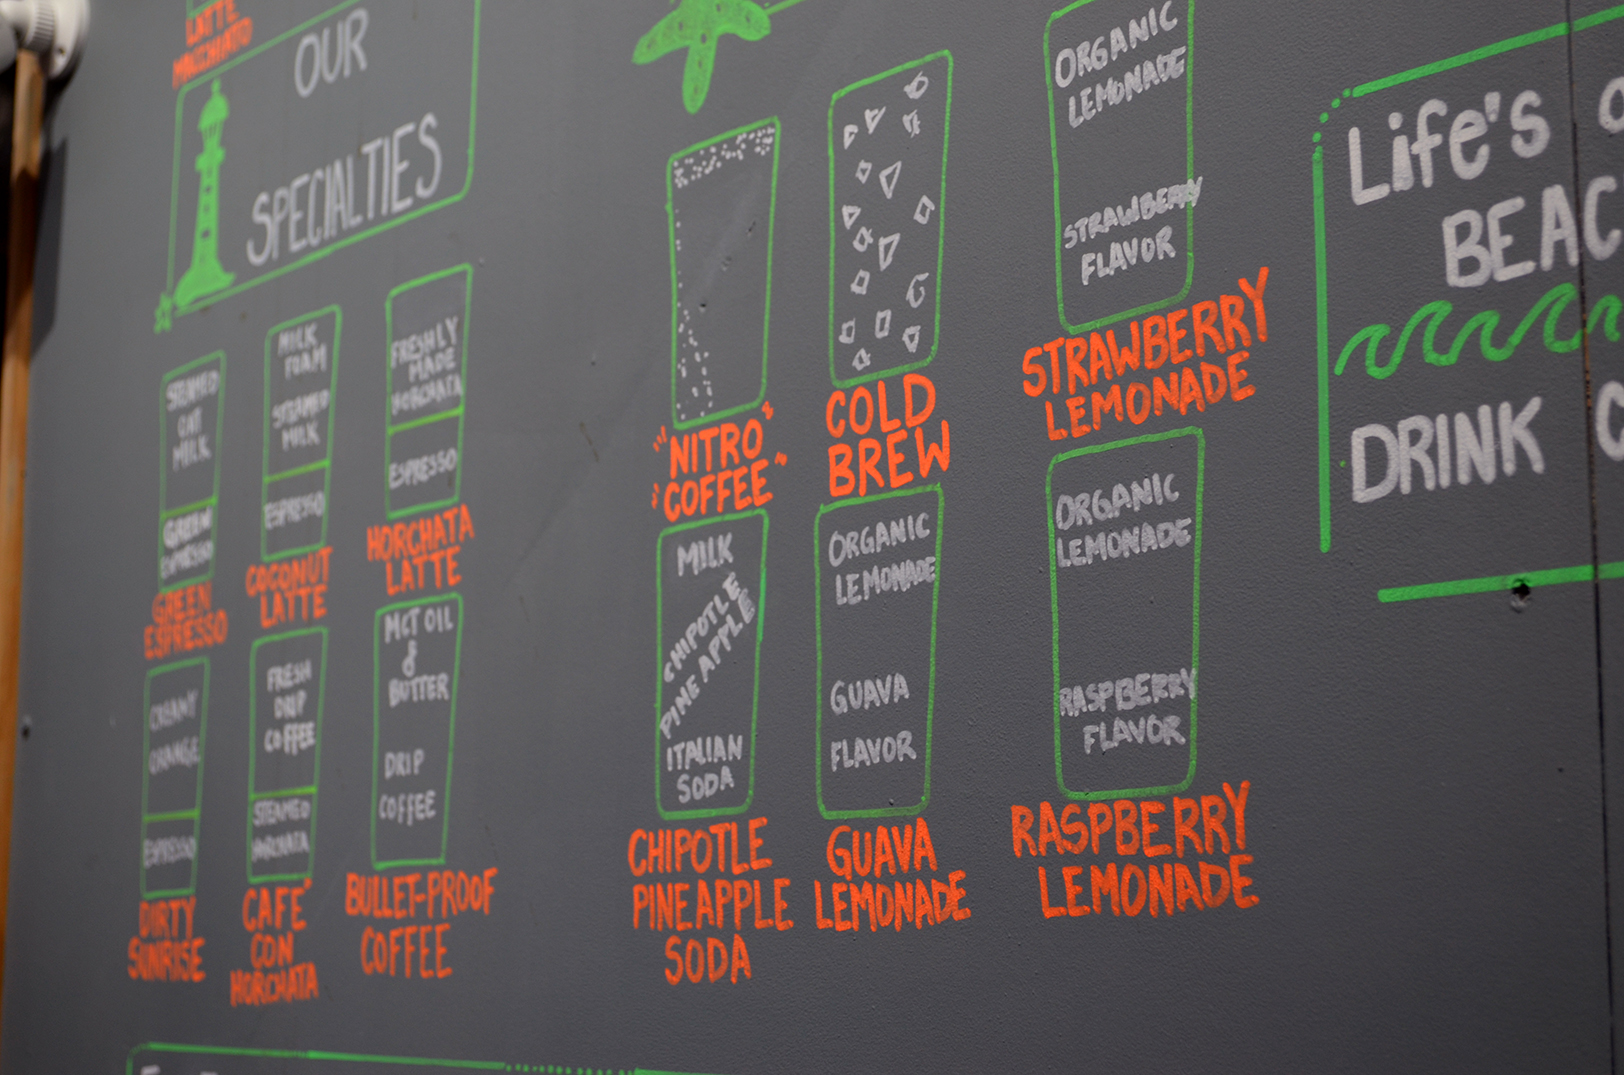 LATTE
MACCHIATO
OUR
SPECIALTIES
STEAMED
OAT
MILK
GREEN
ESPRESSO
GREEN
ESPRESSO
MILK
FOAM
STEAMED
MILK
ESPRESSO
COCONUT
LATTE
FRESHLY
MADE
HORCHATA
ESPRESSO
HORCHATA
LATTE
CREAMY
ORANGE
ESPRESSO
DIRTY
SUNRISE
FRESH
DRIP
COFFEE
STEAMED
HORCHATA
CAFE'
CON
HORCHATA
MCT OIL
&
BUTTER
DRIP
COFFEE
BULLET-PROOF
COFFEE
"NITRO"
"COFFEE"
COLD
BREW
ORGANIC
LEMONADE
STRAWBERRY
FLAVOR
STRAWBERRY
LEMONADE
MILK
CHIPOTLE
PINEAPPLE
ITALIAN
SODA
CHIPOTLE
PINEAPPLE
SODA
ORGANIC
LEMONADE
GUAVA
FLAVOR
GUAVA
LEMONADE
ORGANIC
LEMONADE
RASPBERRY
FLAVOR
RASPBERRY
LEMONADE
Life's
BEAC
DRINK